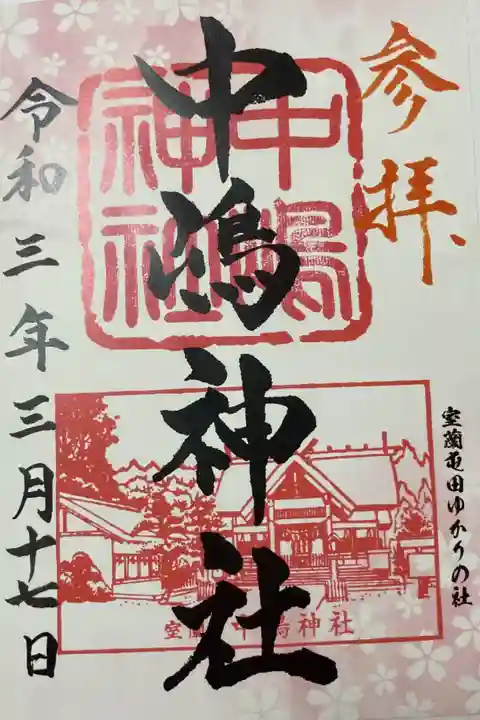 参拝
室蘭屯田ゆかりの社
中嶋神社
中嶋神社
室蘭 中嶋神社
令和三年三月十七日